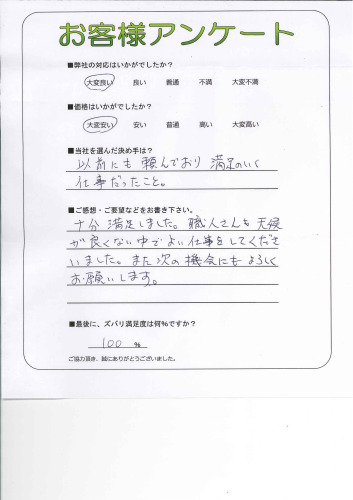 お客様アンケート
■弊社の対応はいかがでしたか？
大変良い 良い 普通 不満 大変不満
■価格はいかがでしたか？
大変安い 安い 普通 高い 大変高い
■当社を選んだ決め手は？
以前にも頼んでおり満足のいく
仕事だったこと。
■ご感想・ご要望などをお書き下さい。
十分満足しました。職人さんも天候
が良くない中でよい仕事をしてくださ
いました。また次の機会にもよろしく
お願いします。
■最後に、ズバリ満足度は何％ですか？
100 ％
ご協力頂き、誠にありがとうございました。